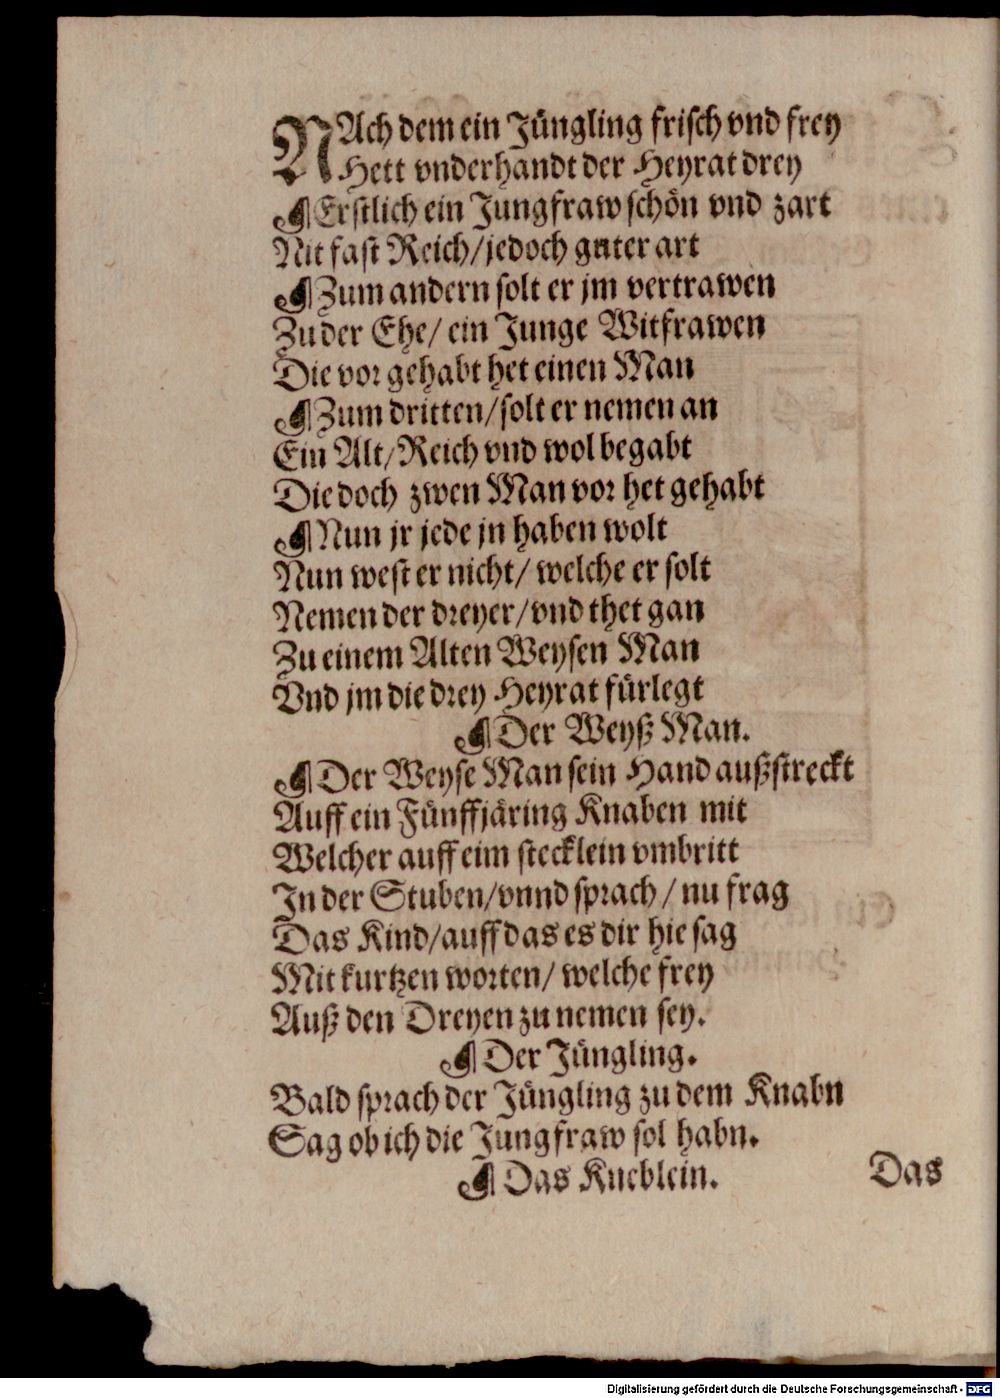 NAch dem ein Jüngling frisch vnd frey
Hett vnderhandt der Heyrat drey
¶ Erstlich ein Jungfraw schön vnd zart
Nit fast Reich/ jedoch guter art
¶ Zum andern solt er jm vertrawen
Zu der Ehe/ ein Junge Witfrawen
Die vor gehabt het einen Man
¶ Zum dritten/ solt er nemen an
Ein Alt/ Reich vnd wol begabt
Die doch zwen Man vor het gehabt
¶ Nun jr jede jn haben wolt
Nun west er nicht/ welche er solt
Nemen der dreyer/ vnd thet gan
Zu einem Alten Weysen Man
Vnd jm die drey Heyrat fürlegt
¶ Der Weyß Man.
¶ Der Weyse Man sein Hand außstreckt
Auff ein Fünffjäring Knaben mit
Welcher auff eim stecklein vmbritt
In der Stuben/ vnnd sprach/ nu frag
Das Kind/ auff das es dir hie sag
Mit kurtzen worten/ welche frey
Auß den Dreyen zu nemen sey.
¶ Der Jüngling.
Bald sprach der Jüngling zu dem Knabn
Sag ob ich die Jungfraw sol habn.
¶ Das Kneblein.
Das
Digitalisierung gefördert durch die Deutsche Forschungsgemeinschaft - DFG